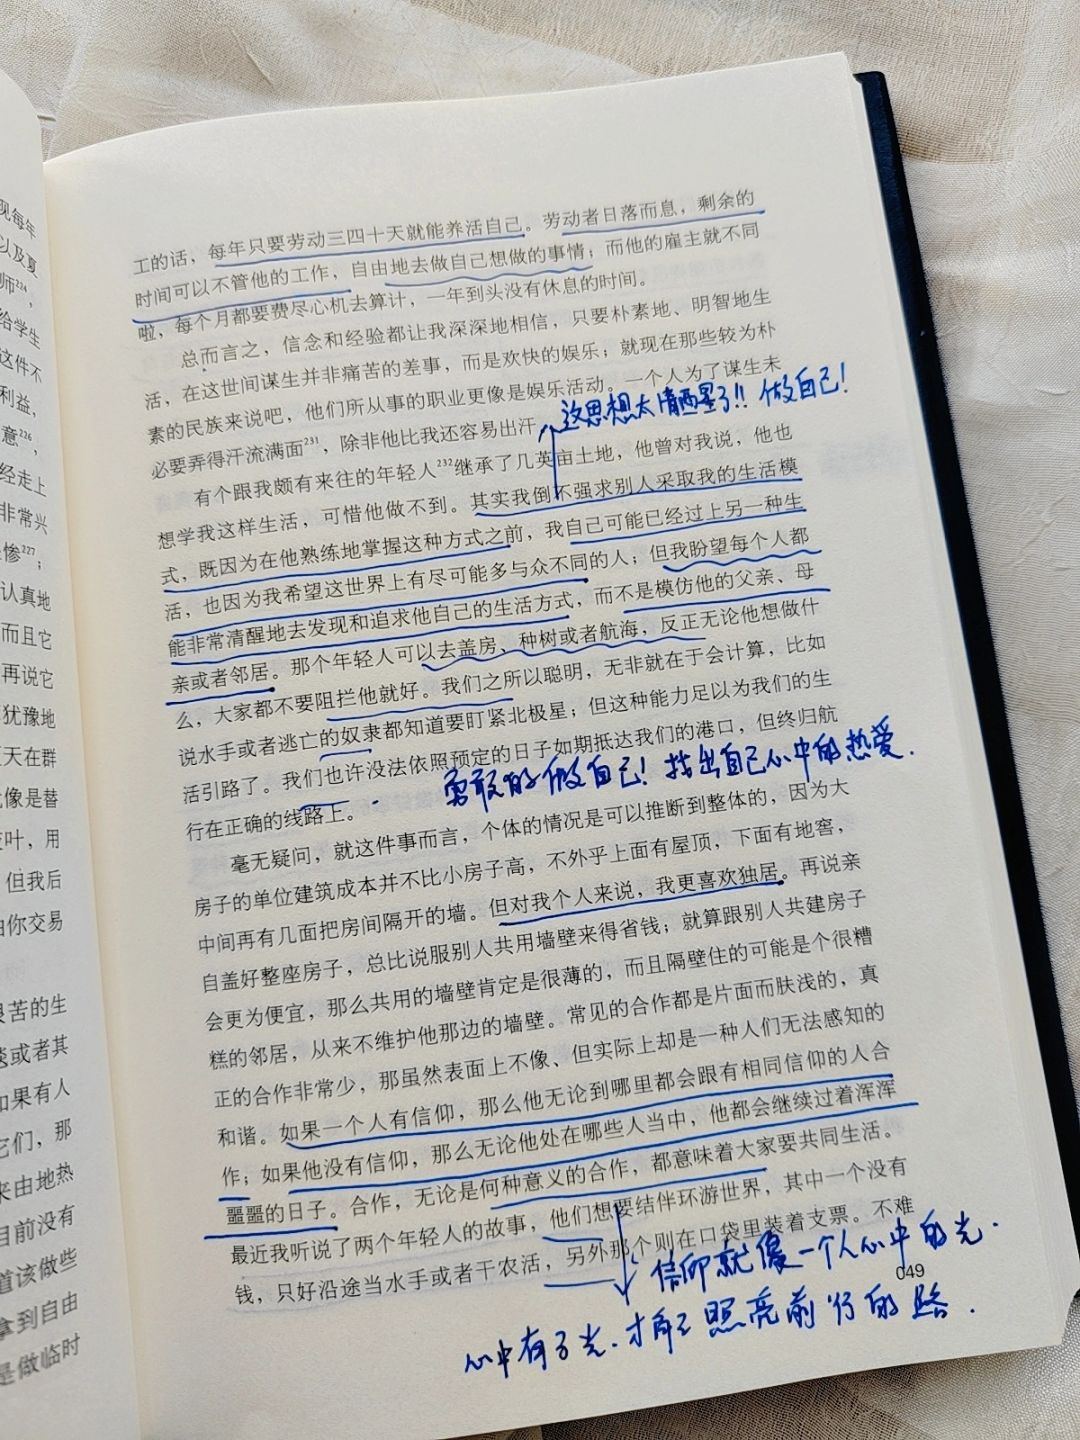 现每年
以及夏
师²²⁴，
给学生
这件不
利益，
意²²⁶，
经走上
非常兴
惨²²⁷；
认真地
而且它
再说它
犹豫地
天在群
就像是替
叶，用
但我后
由你交易
艰苦的生
或者其
如果有人
它们，那
来由地热
目前没有
道该做些
拿到自由
是做临时
工的话，每年只要劳动三四十天就能养活自己。劳动者日落而息，剩余的
时间可以不管他的工作，自由地去做自己想做的事情；而他的雇主就不同
啦，每个月都要费尽心机去算计，一年到头没有休息的时间。
总而言之，信念和经验都让我深深地相信，只要朴素地、明智地生
活，在这世间谋生并非痛苦的差事，而是欢快的娱乐；就现在那些较为朴
素的民族来说吧，他们所从事的职业更像是娱乐活动。一个人为了谋生未
必要弄得汗流满面²³¹，除非他比我还容易出汗
这思想太清晰了!! 做自己！
有个跟我颇有来往的年轻人²³²继承了几英亩土地，他曾对我说，他也
想学我这样生活，可惜他做不到。其实我倒不强求别人采取我的生活模
式，既因为在他熟练地掌握这种方式之前，我自己可能已经过上另一种生
活，也因为我希望这世界上有尽可能多与众不同的人；但我盼望每个人都
能非常清醒地去发现和追求他自己的生活方式，而不是模仿他的父亲、母
亲或者邻居。那个年轻人可以去盖房、种树或者航海，反正无论他想做什
么，大家都不要阻拦他就好。我们之所以聪明，无非就在于会计算，比如
说水手或者逃亡的奴隶都知道要盯紧北极星；但这种能力足以为我们的生
活引路了。我们也许没法依照预定的日子如期抵达我们的港口，但终归航
行在正确的线路上。
勇敢的做自己！找出自己心中的热爱.
毫无疑问，就这件事而言，个体的情况是可以推断到整体的，因为大
房子的单位建筑成本并不比小房子高，不外乎上面有屋顶，下面有地窖，
中间再有几面把房间隔开的墙。但对我个人来说，我更喜欢独居。再说亲
自盖好整座房子，总比说服别人共用墙壁来得省钱；就算跟别人共建房子
会更为便宜，那么共用的墙壁肯定是很薄的，而且隔壁住的可能是个很糟
糕的邻居，从来不维护他那边的墙壁。常见的合作都是片面而肤浅的，真
正的合作非常少，那虽然表面上不像、但实际上却是一种人们无法感知的
和谐。如果一个人有信仰，那么他无论到哪里都会跟有相同信仰的人合
作；如果他没有信仰，那么无论他处在哪些人当中，他都会继续过着浑浑
噩噩的日子。合作，无论是何种意义的合作，都意味着大家要共同生活。
最近我听说了两个年轻人的故事，他们想要结伴环游世界，其中一个没有
钱，只好沿途当水手或者干农活，另外那个则在口袋里装着支票。不难
信仰就像一个人心中的光.
049
心中有了光.才能照亮前行的路.